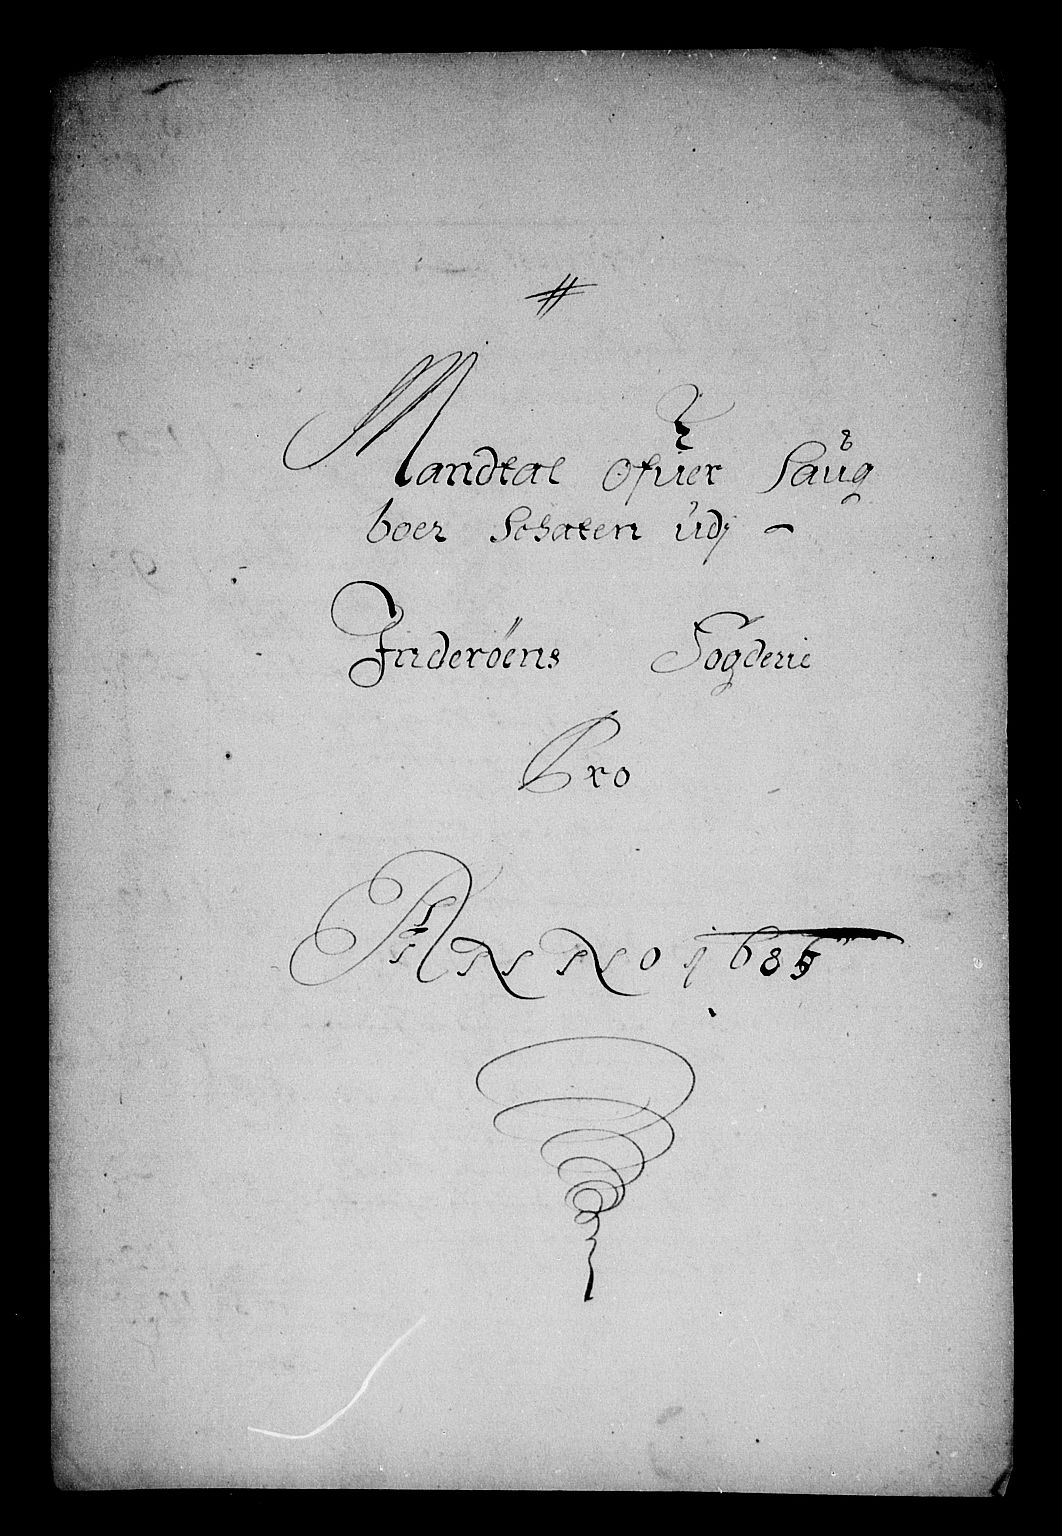 #
Mandtal ofuer Saug
boer Schaten udj -
Inderöens Fogderie
Pro
ANNO 1685